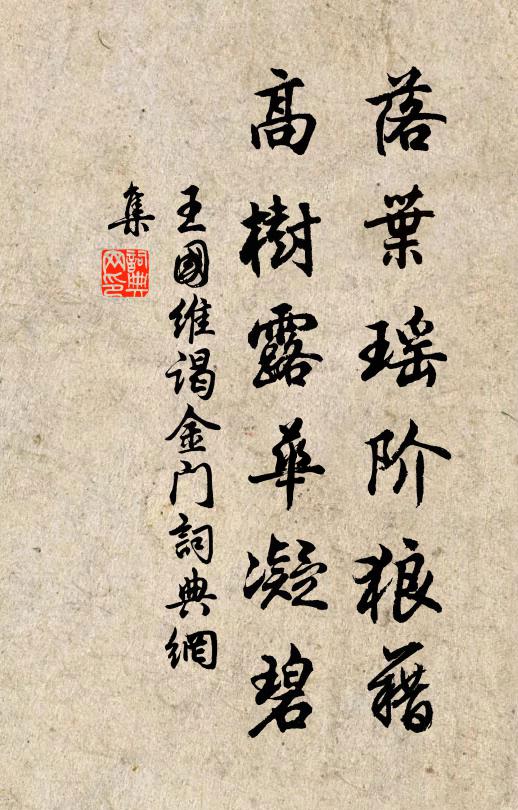 落葉瑶阶狼藉
高樹露華凝碧
王國維谒金门詞典網
集
詞典
网印